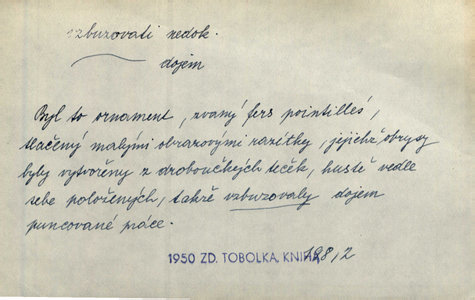 vzbuzovati nedok.
dojem
Byl to ornament, zvaný fers pointillés,
tlačený malými obrazovými razítky, jejichž obrysy
byly vytvořeny z droboučkých teček, hustě vedle
sebe položených, takže vzbuzovaly dojem
puncované práce.
1950 ZD. TOBOLKA, KNIHA 198,2